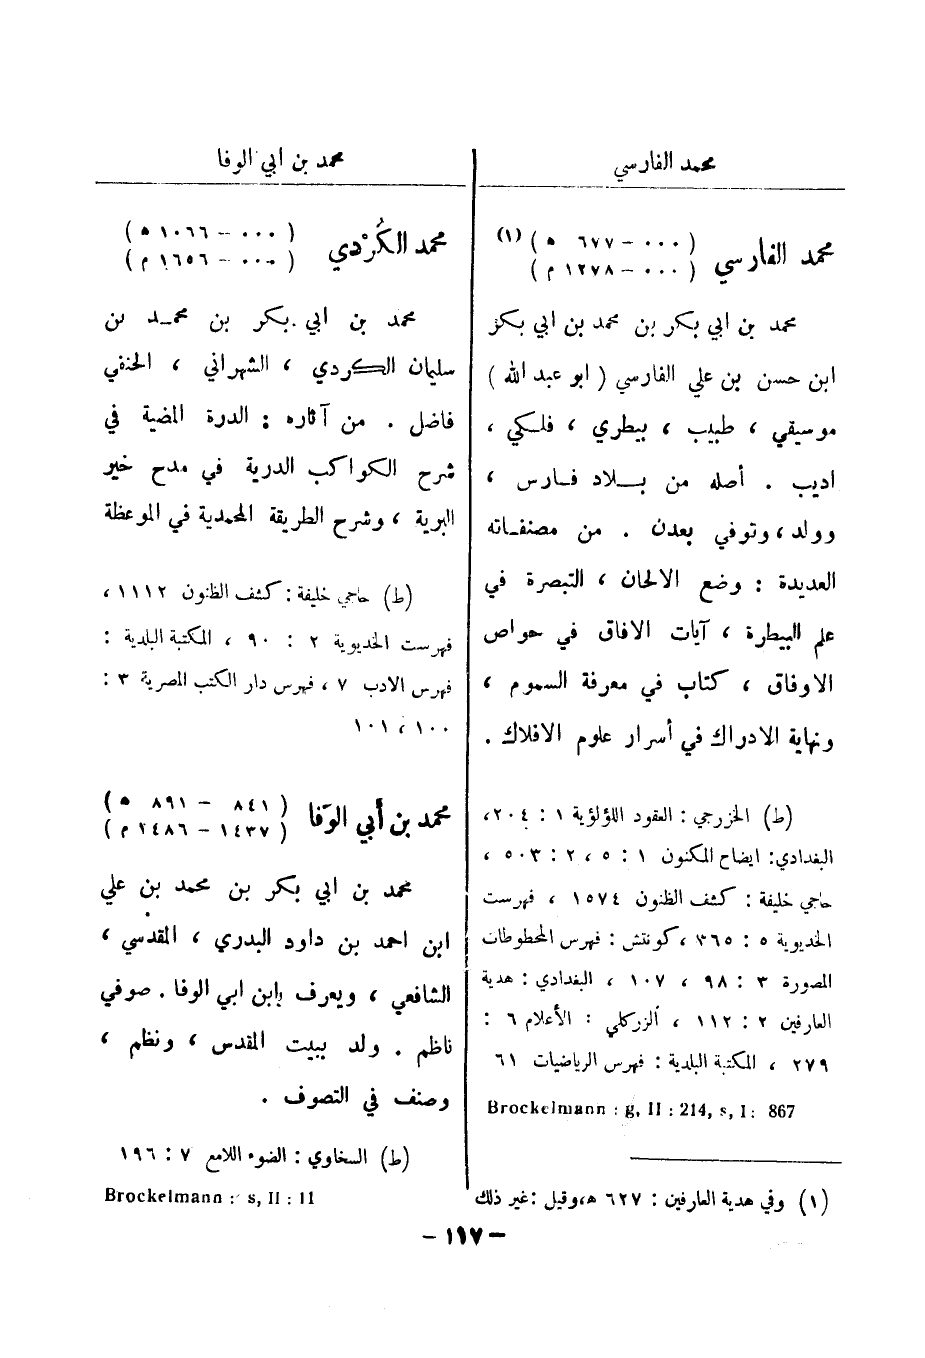 محمد الفارسي
محمد الفارسي ( ٠٠٠ – ٦٧٧ ه ) (١)
( ٠٠٠ – ١٢٧٨ م )
محمد بن ابي بكر بن محمد بن ابي بكر
ابن حسن بن علي الفارسي ( ابو عبد الله )
موسيقي ، طبيب ، بيطري ، فلكي ،
اديب . أصله من بلاد فارس ،
وولد ، وتوفي بعدن . من مصنفاته
العديدة : وضع الالحان ، التبصرة في
علم البيطرة ، آيات الافاق في حواص
الاوفاق ، كتاب في معرفة السموم ،
ونهاية الادراك في أسرار علوم الافلاك .
(ط) الخزرجي : العقود اللؤلؤية ١ : ٢٠٤ ،
البغدادي : ايضاح المكنون ١ : ٥ ، ٢ : ٥٠٣ ،
حاجي خليفة : كشف الظنون ١٥٧٤ ، فهرست
الخديوية ٥ : ٣٦٥ ، كونتش : فهرس المخطوطات
المصورة ٣ : ٩٨ ، ١٠٧ ، البغدادي : هدية
العارفين ٢ : ١١٢ ، الزركلي : الأعلام ٦ :
٢٧٩ ، المكتبة البلدية : فهرس الرياضيات ٦١
Brockelmann : g, II : 214, s, I : 867
(١) وفي هدية العارفين : ٦٢٧ ه، وقيل : غير ذلك
محمد بن ابي الوفا
محمد الكُرْدي ( ٠٠٠ – ١٠٦٦ ه )
( ٠٠٠ – ١٦٥٦ م )
محمد بن ابي بكر بن محمد بن
سليمان الكردي ، الشهراني ، الحنفي
فاضل . من آثاره : الدرة المضية في
شرح الكواكب الدرية في مدح خير
البرية ، وشرح الطريقة المحمدية في الموعظة
(ط) حاجي خليفة : كشف الظنون ١١١٢ ،
فهرست الخديوية ٢ : ٩٠ ، المكتبة البلدية :
فهرس الادب ٧ ، فهرس دار الكتب المصرية ٣ :
١٠٠ ، ١٠١
محمد بن أبي الوَفا ( ٨٤١ – ٨٩١ ه )
( ١٤٣٧ – ١٤٨٦ م )
محمد بن ابي بكر بن محمد بن علي
ابن احمد بن داود البدري ، المقدسي ،
الشافعي ، ويعرف بإبن ابي الوفا . صوفي
ناظم . ولد ببيت المقدس ، ونظم ،
وصنف في التصوف .
(ط) السخاوي : الضوء اللامع ٧ : ١٩٦
Brockelmann : s, II : 11
– ١١٧ –